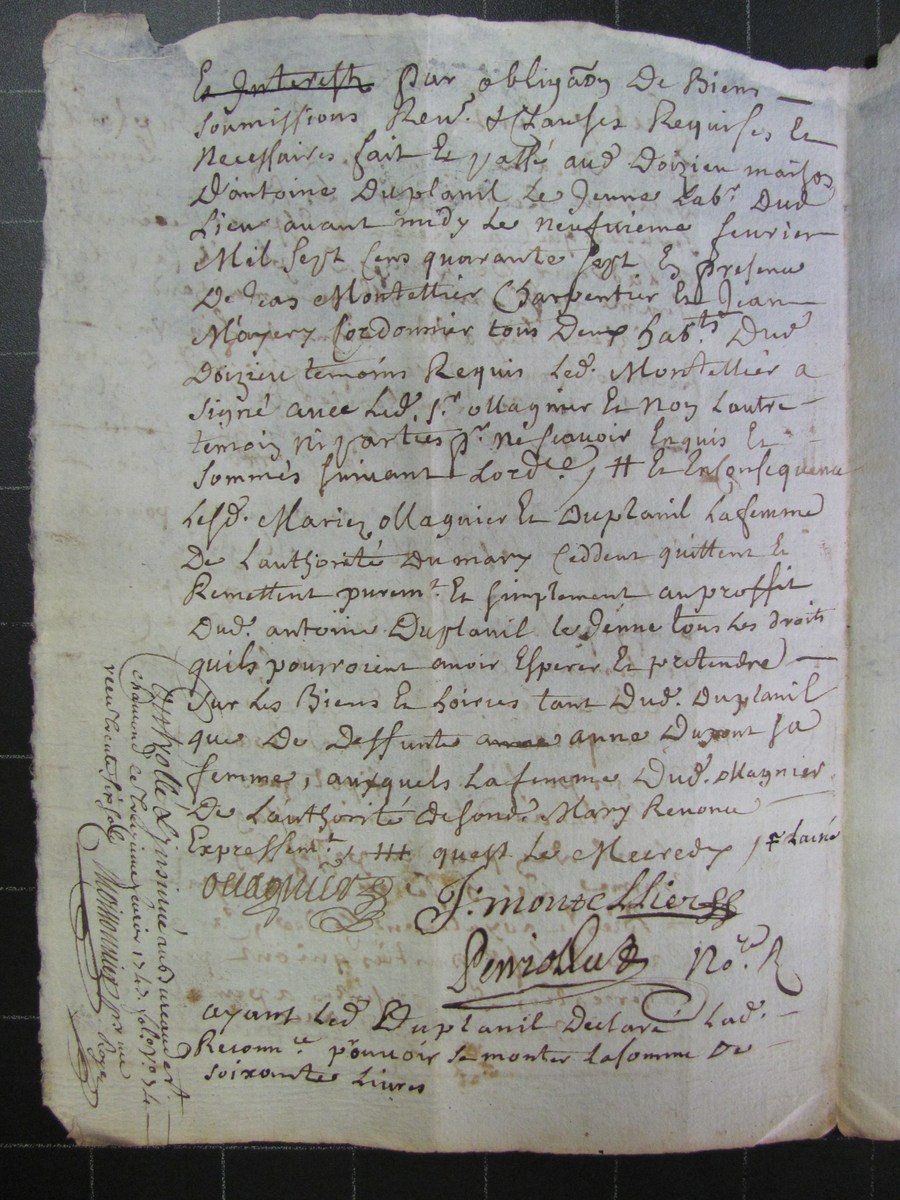 Et Interest par obligãon De Biens
Soumissions Renõn & Clauses Requises Et
Necessaires fait Et passé aud Doizieu maison
D'antoine Duplanil Le Jeune Labr Dud
Lieu avant midy Le Neufvieme fevrier
Mil Sept Cens quarante Sept En presence
De Jean Montellier Charpentier Et Jean
Mayery Cordonnier tous Deux habts Dud
Doizieu temoins Requis Led. Montellier a
Signé avec Led. Sr ollagnier Et Non Lautre
temoin Ni parties pr Ne scavoir Enquis Et
Sommés suivant Lordce, # Et En Consequence
Lesd. Mariez ollagnier Et Duplanil La femme
De L'authorité Du mary Ceddent quittent Et
Remettent puremt Et simplement au proffit
Dud. antoine Duplanil le Jenne tous Les droits
quils pourroient avoir Esperer Et pretendre
Sur Les Biens Et hoiries tant Dud. Duplanil
que De Deffunte anne Dupont sa
femme, auxquels La femme Dud. ollagnier
De L'authorité de sond. Mary Renonce
Expressemt # quest Le Mecredy, # Lainé
ollagnier
J: montellier
Perriollat Nore R
ayant Led Duplanil Declaré Lad.
Reconnce pouvoir se monter La somme De
soixante Livres
Controllé & Insinué au bureau de st
chamond Le treizieme fevrier 1747 folo
receu trente six sols Moissonnier